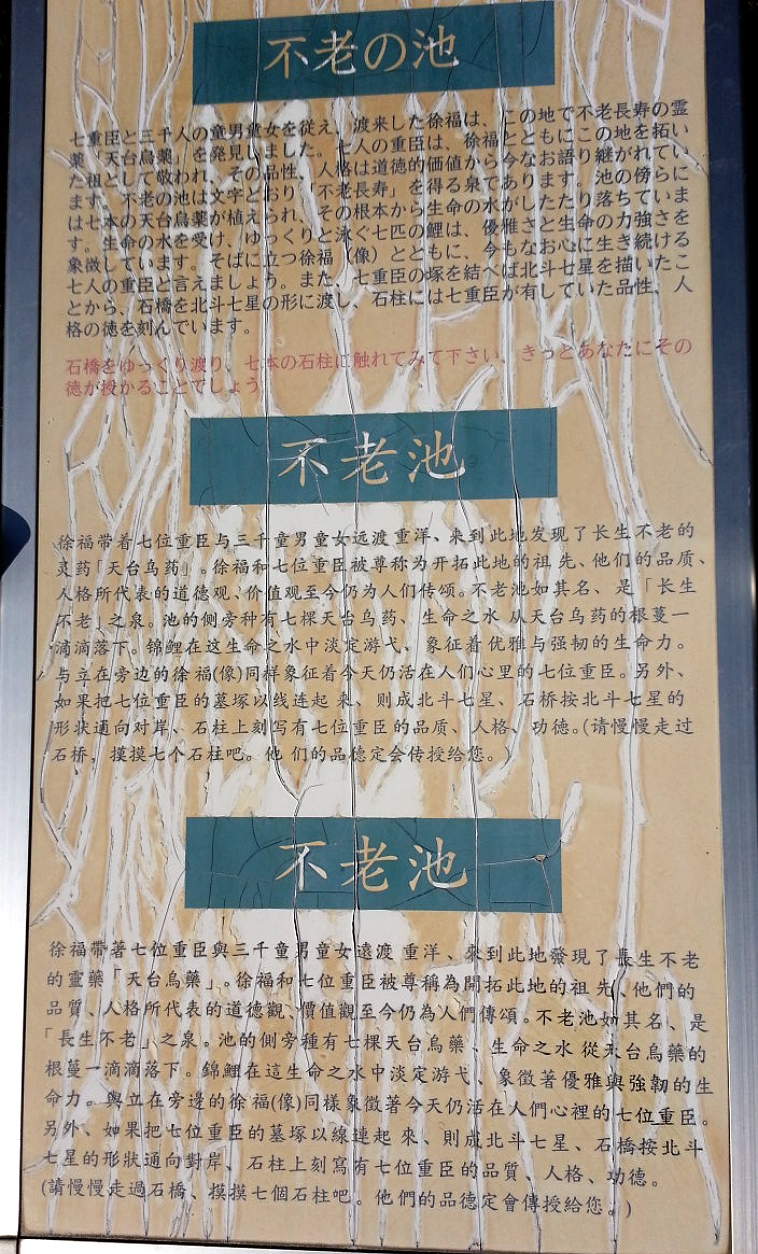 不老の池
七重臣と三千人の童男童女を従え、渡来した徐福は、この地で不老長寿の霊
薬「天台烏薬」を発見しました。七人の重臣は、徐福とともにこの地を拓い
た祖として敬われ、その品性、人格は道徳的価値から今なお語り継がれてい
ます。不老の池は文字どおり「不老長寿」を得る泉であります。池の傍らに
は七本の天台烏薬が植えられ、その根本から生命の水がしたたり落ちていま
す。生命の水を受け、ゆっくりと泳ぐ七匹の鯉は、優雅さと生命の力強さを
象徴しています。そばに立つ徐福（像）とともに、今もなお心に生き続ける
七人の重臣と言えましょう。また、七重臣の塚を結べば北斗七星を描いたこ
とから、石橋を北斗七星の形に渡し、石柱には七重臣が有していた品性、人
格の徳を刻んでいます。
石橋をゆっくり渡り、七本の石柱に触れてみて下さい、きっとあなたにその
徳が授かることでしょう
不老池
徐福带着七位重臣与三千童男童女远渡重洋、来到此地发现了长生不老的
灵药「天台乌药」。徐福和七位重臣被尊称为开拓此地的祖先、他们的品质、
人格所代表的道德观、价值观至今仍为人们传颂。不老池如其名、是「长生
不老」之泉。池的侧旁种有七棵天台乌药、生命之水从天台乌药的根蔓一
滴滴落下。锦鲤在这生命之水中淡定游弋、象征着优雅与强韧的生命力。
与立在旁边的徐福(像)同样象征着今天仍活在人们心里的七位重臣。另外、
如果把七位重臣的墓塚以线连起来、则成北斗七星、石桥按北斗七星的
形状通向对岸、石柱上刻写有七位重臣的品质、人格、功德。(请慢慢走过
石桥，摸摸七个石柱吧。他们的品德定会传授给您。)
不老池
徐福帶著七位重臣與三千童男童女遠渡重洋、來到此地發現了長生不老
的靈藥「天台烏藥」。徐福和七位重臣被尊稱為開拓此地的祖先、他們的
品質、人格所代表的道德觀、價值觀至今仍為人們傳頌。不老池如其名、是
「長生不老」之泉。池的側旁種有七棵天台烏藥、生命之水從天台烏藥的
根蔓一滴滴落下。錦鯉在這生命之水中淡定游弋、象徵著優雅與強韌的生
命力。與立在旁邊的徐福(像)同樣象徵著今天仍活在人們心裡的七位重臣。
另外、如果把七位重臣的墓塚以線連起來、則成北斗七星、石橋按北斗
七星的形狀通向對岸、石柱上刻寫有七位重臣的品質、人格、功德。
(請慢慢走過石橋、摸摸七個石柱吧。他們的品德定會傳授給您。)